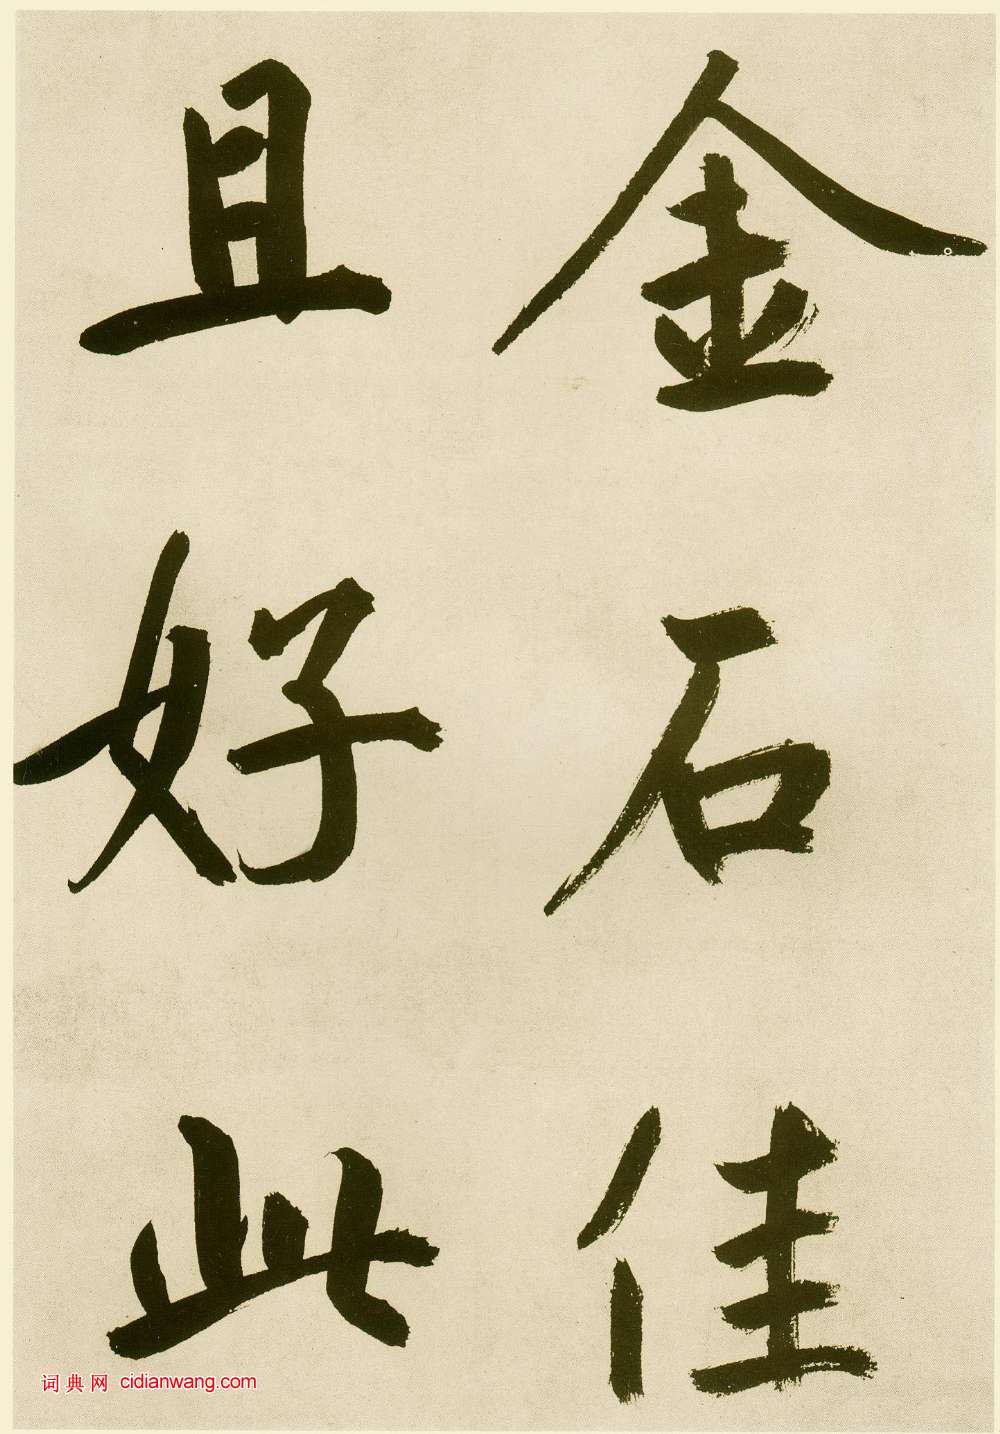 金石佳
且好此
词典网 cidianwang.com